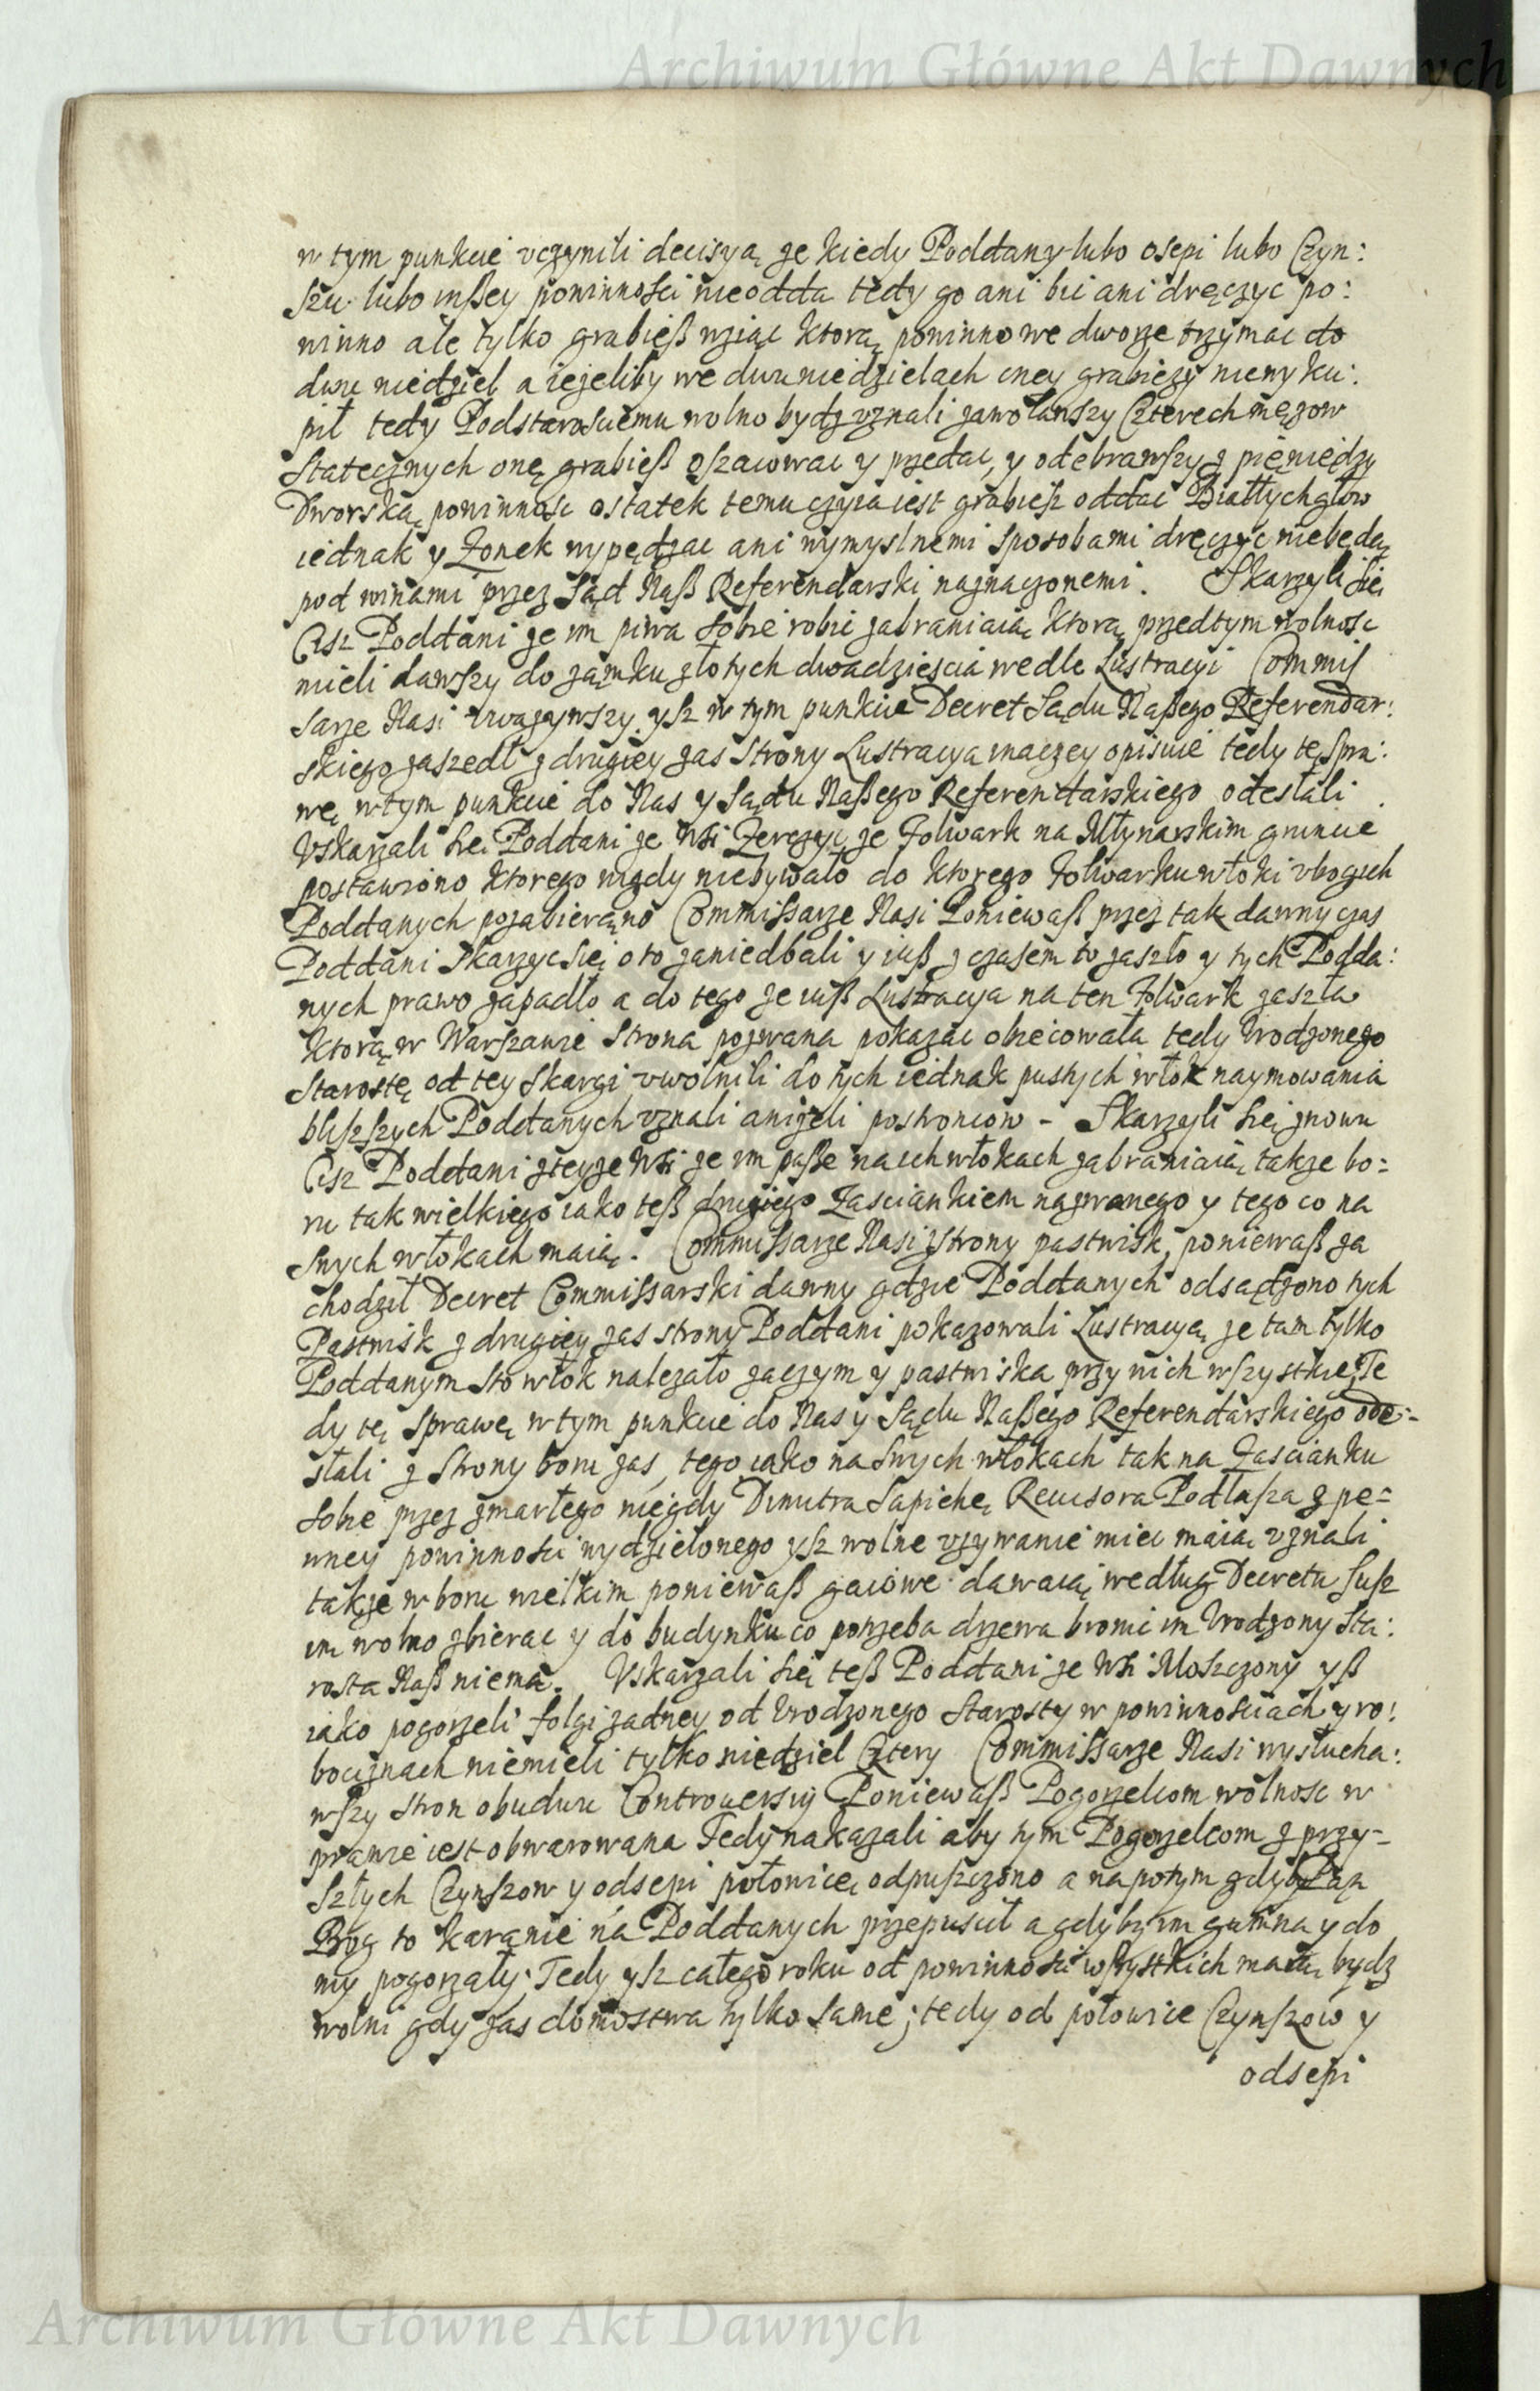 Archiwum Główne Akt Dawnych
w tym punkcie vczynili decisyą ze kiedy Poddany lubo osepi lubo Czyn:
szu lubo inßey powinnosci nieodda tedy go ani bic ani dręczyc po:
winno ale tylko grabieß wziąc ktorą powinno we dworze trzymac do
dwu niedziel a iezeliby we dwu niedzielach oney grabiezy niewyku:
pił tedy Podstarosciemu wolno bydz vznali zawoławszy Czterech męzow
Statecznych onę grabieß oszacowac y przedac, y odebrawszy z pięniędzy
Dworską powinnosc ostatek temu czyia iest grabiesz oddac Białychgłow
iednak y Zonek wypędzac ani wymyslnemi sposobami dręczyc niebędą
pod winami przez Sąd Naß Referendarski naznaczonemi. Skarzyli się
Cisz Poddani ze im piwa sobie robic zabraniaią ktorą przedtym wolnosc
mieli dawszy do zamku złotych dwadziescia wedle Lustracyi Commis
sarze Nasi vwazywszy ysz w tym punkcie Decret Sądu Naßego Referendar:
skiego zaszedł z drugiey zas strony Lustracya inaczey opisuie tedy tę spra:
wę w tym punkcie do Nas y Sądu Naßego Referendarskiego odesłali.
Vskarzali się Poddani ze Wsi Zerczyc ze Folwark na Młynarskim gruncie
postawiono ktorego nigdy niebywało do ktorego Folwarku włoki vbogich
Poddanych pozabierano Commissarze Nasi Poniewaß przez tak dawny czas
Poddani skarzyc się o to zaniedbali y iuß z czasem to zaszło y tych Podda:
nych prawo zapadło a do tego ze iuß Lustracya na ten Folwark zaszła
ktorą w Warszawie strona pozwana pokazac obiecowała tedy Vrodzonego
Starostę od tey skargi vwolnili do tych iednak pustych włok naymowania
blizszych Poddanych vznali anizeli postroncow - Skarzyli się znowu
Cisz Poddani zteyze Wsi ze im paße na ich włokach zabraniaią takze bo:
ru tak wielkiego iako teß drugiego Zasciankiem nazwanego y tego co na
Swych włokach maią. Commissarze Nasi z strony pastwisk, poniewaß za
chodził Decret Commissarski dawny gdzie Poddanych odsądzono tych
Pastwisk z drugiey zas strony Poddani pokazowali Lustracyą ze tam tylko
Poddanym sto włok nalezało zaczym y pastwiska przy nich wszystkie Te
dy tę sprawę w tym punkcie do Nas y Sądu Naßego Referendarskiego ode:
słali z strony boru zas, tego iako na swych włokach tak na Zascianku
sobie przez zmarłego niegdy Dimitra Sapiehę Reuisora Podlasza z pe:
wney powinnosci wydzielonego ysz wolne vzywanie miec maią vznali
takze w boru wielkim poniewaß gaiowe dawaią według Decretu susz
im wolno zbierac y do budynku co potrzeba drzewa bronic im Vrodzony Sta:
rosta Naß niema. Vskarzali się teß Poddani ze Wsi Moszczony yß
iako pogorzeli folgi zadney od Vrodzonego Starosty w powinnosciach y ro:
bociznach niemieli tylko niedziel Cztery Commissarze Nasi wysłucha:
wszy stron obudwu Controuersiy Poniewaß Pogorzelcom wolnosc w
prawie iest obwarowana Tedy nakazali aby tym Pogorzelcom z przy-
szłych Czynszow y odsepi połowicę odpuszczono a napotym gdyby Pan
Bog to karanie na Poddanych przepuscił a gdyby im gumna y do
my pogorzały; Tedy ysz całego roku od powinnosci wszystkich maią bydz
wolni gdy zas domostwa tylko same; tedy od połowice Czynszow y
odsepi
Archiwum Główne Akt Dawnych